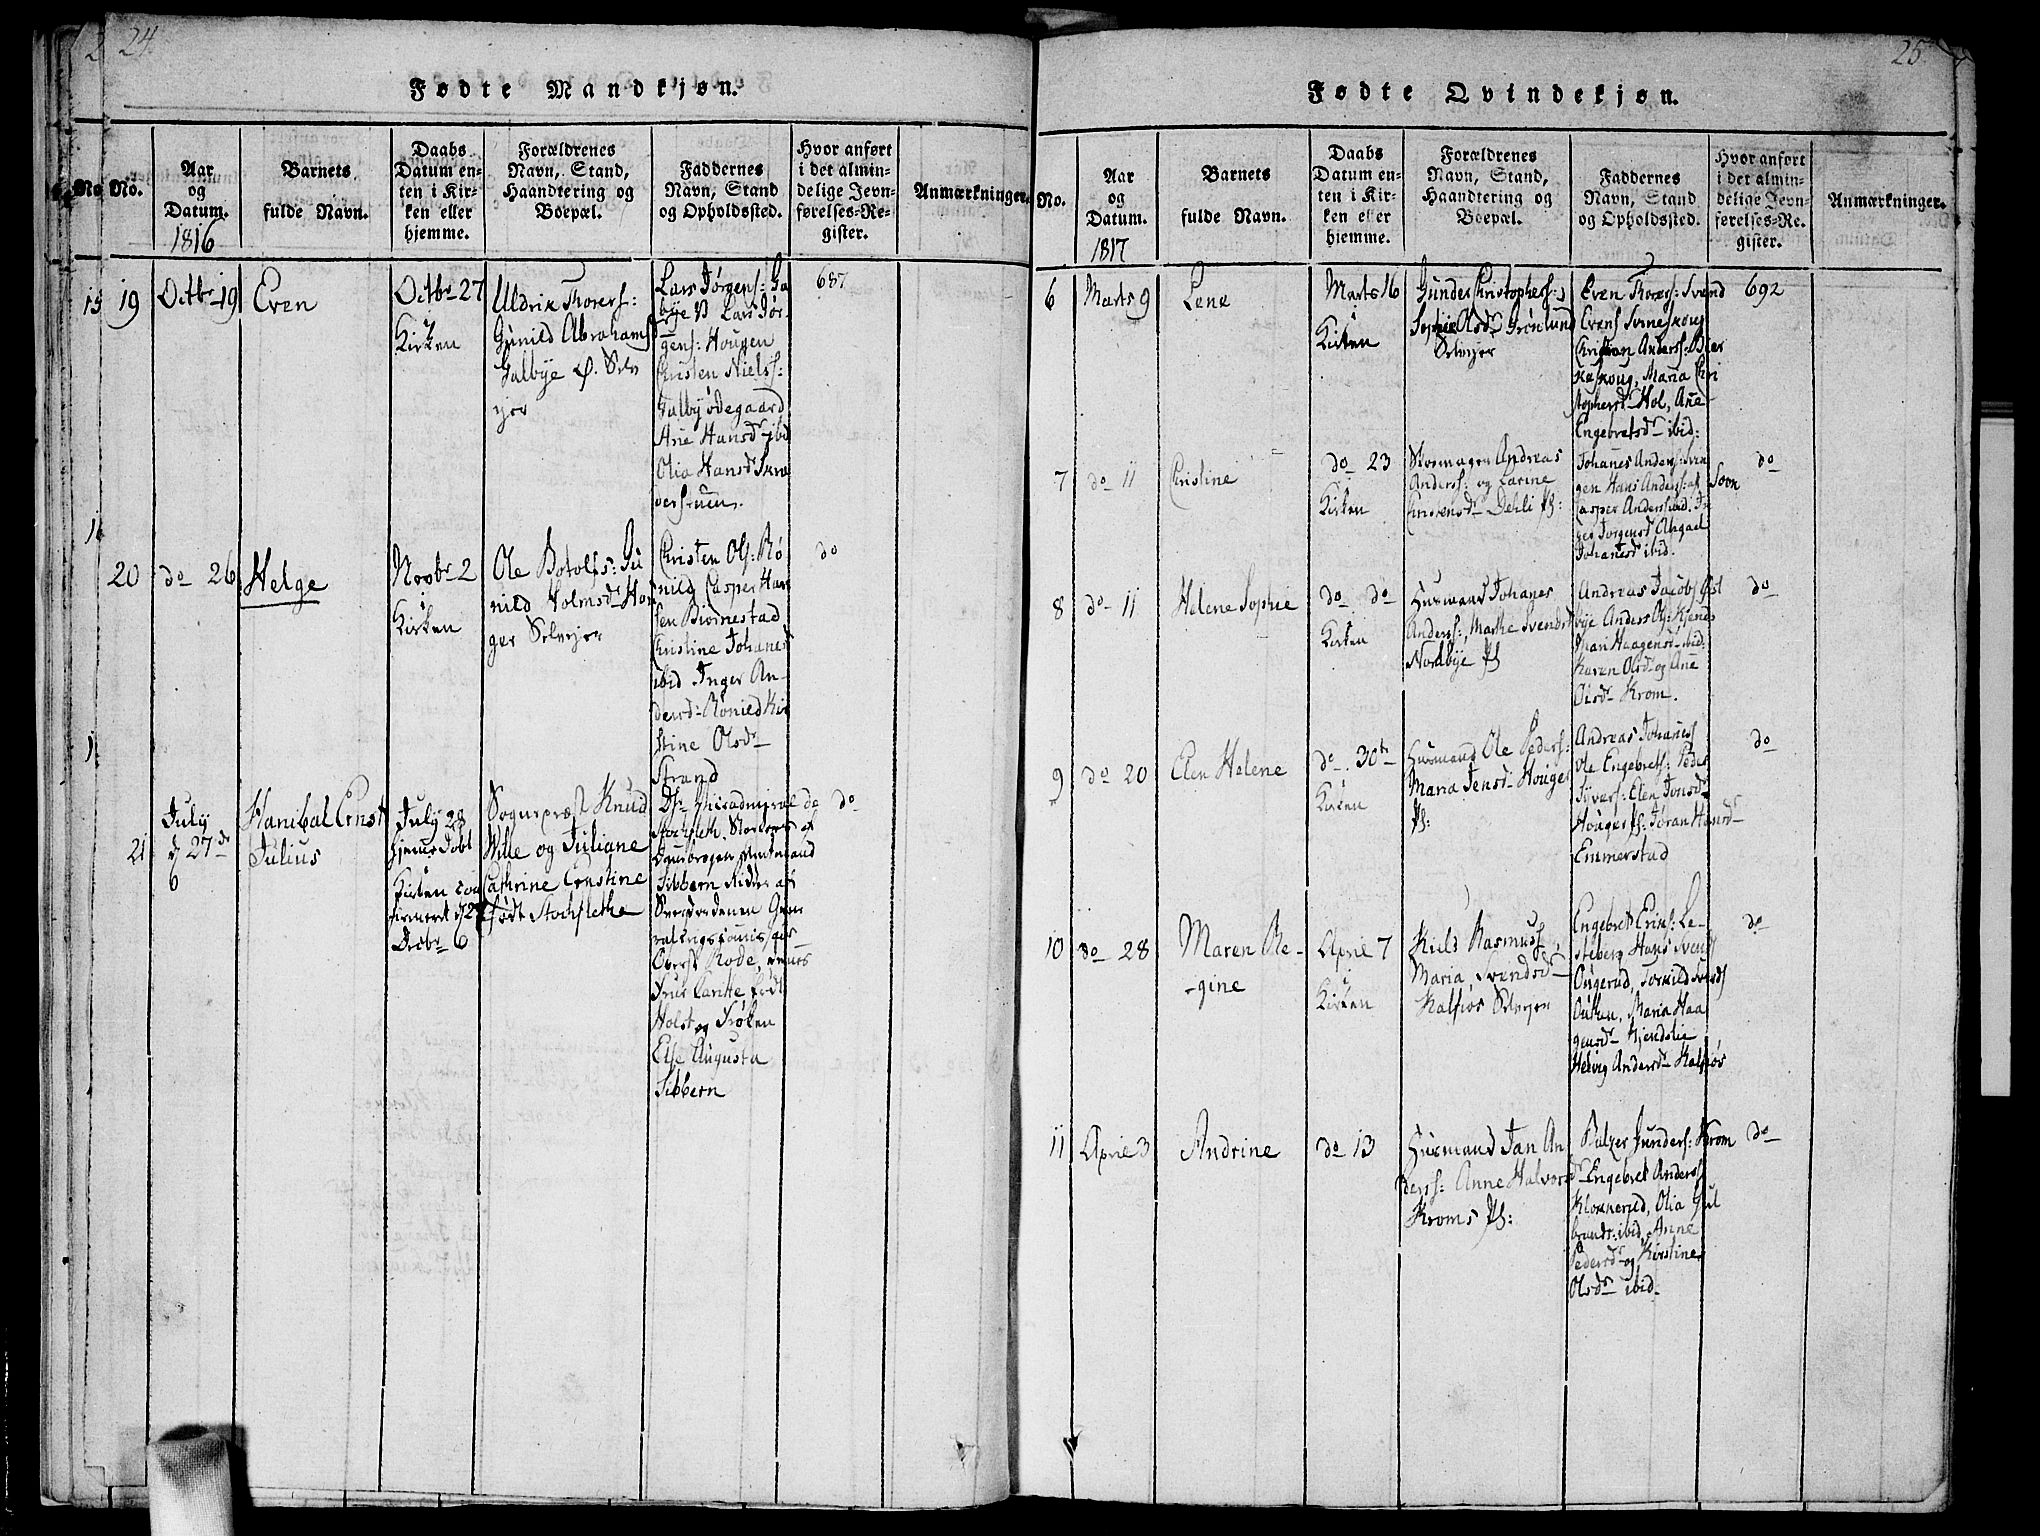 24
Fødte Mandkjøn.
No.
Aar
og
Datum.
1816
Barnets
fulde Navn.
Daabs
Datum en-
ten i Kir-
ken eller
hjemme.
Forældrenes
Navn, Stand,
Haandtering og
Boepæl.
Faddernes
Navn, Stand
og Opholdssted.
Hvor anført
i det almin-
delige Jevn-
førelses-Re-
gister.
Anmærkninger.
19
Octbr 19
Even
Octbr 27
i
Kirken
Uldrik Thorers:
Gunild Abrahamsd
Galbye
Lars Jørgens: Ga
bye Lars Jør-
gens: Hougen
Christen Niels:
Galbyødegaard
Ane Hansdr ibd
Olia Hansdr
687
20
do 26
Helge
Novbr 2
i
Kirken
Ole Botolfs: Gu
nild Holmsdr Hon
ger Selvejer
Christen Ols: Rø
nild Casper Han
sen Biørnestad
Christine Johanesd
ibid Inger An-
dersdr Rønild Kir
stine Olsdr
Strand
do
21
July
d 27de
6
Hanibal Ernst
Julius
July 28
hjemedøbt
Kirken con
firmert d 27
Decbr 6
Sognepræst Knud
Wille og Juliane
Cathrine Ernstine
født Stochfleth
Stochfleth
Amtmand
Sibbern Ridder af
Sverdordenen Gene
Oberst Rode
født
Holst og Frøken
Else Augusta
Sibbern
do
25
Fødte Qvindekjøn.
No.
Aar
og
Datum.
1817
Barnets
fulde Navn.
Daabs
Datum en-
ten i Kir-
ken eller
hjemme.
Forældrenes
Navn, Stand,
Haandtering og
Boepæl.
Faddernes
Navn, Stand
og Opholdssted.
Hvor anført
i det almin-
delige Jevn-
førelses-Re-
gister.
Anmærkninger.
6
Marts 9
Lena
Marts 16
i
Kirken
Gunder Christophers:
Sophie Olsdr Grønlund
Selvejer
Even Thorers: Svend
Evens Svineskoug
Christian Anders: Bier
keskoug, Maria Chri
stophersdr Hol, Ane
Engebretsdr ibid:
692
7
do 11
Christine
do 23
i
Kirken
Skomager Andreas
Anders: og Karine
Christensdr Dehli Pl:
Johanes Anders:
gen Hans Anders:
Casper Anders ibid. In
ger Jørgensdr
Johanesd ibid.
do
8
do 11
Helene Sophie
do do
i
Kirken
Husmand Johanes
Anders:, Marthe Svendsd
Nordbye Pl
Andreas Jacobs Øst
bye Anders Ols:
Mari Haagensd ibid:
Karen Olsdr og Ane
Olsdr Krom.
do
9
do 20
Elen Helene
do 30te
i
Kirken
Husmand Ole Peders:
Maria Jensdr Houger
Pl:
Andreas Johanes
Ole Engebrets: Peder
Syvers: Elen Jonsdr
Houger Pl: Jøran Hansdr
Emmerstad
do
10
do 28
Maren Re-
-gine
April 7
i
Kirken
Kield Rasmuss,
Maria Svendsdr
Kalføs Selvejer
Engebret Eriks: Le-
steberg Hans Svends
Ougerud, Torkild Svends
Maria Haa
gensdr
Helvig Andersdr Kalføs
do
11
April 3
Andrine
do 13
Husmand Jan An
derss: Anne Halvorsd
Kroms Pl:
Balzer Gunders: Krom
Engebret Anders
Klokkerud, Olia Gul
brands: ibid, Anne
Pedersdr og Kirstine
Olsdr ibid.
do